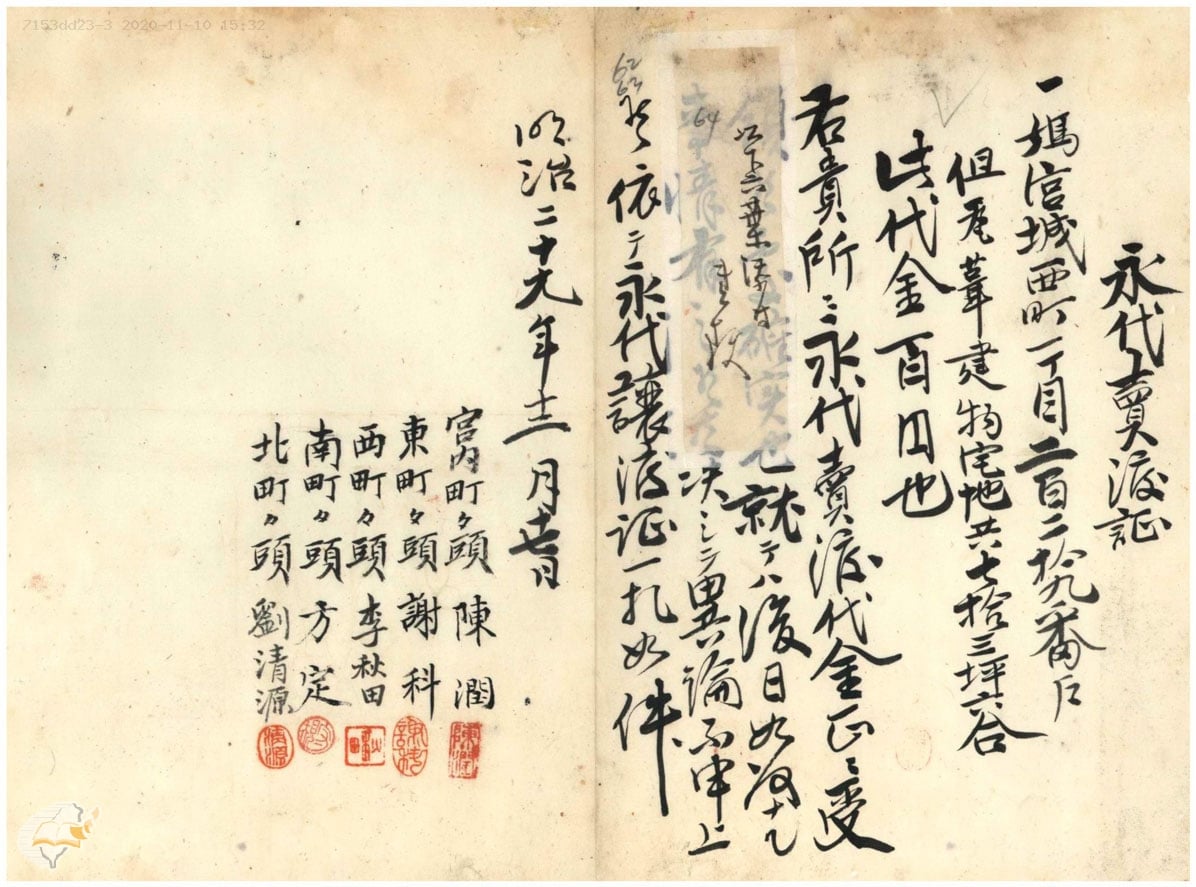 7153dd23-3 2020-11-10 15:32
永代賣渡証
一媽宮城西町一丁目二百二拾九番戶
但瓦葺建物宅地共七拾三坪六合
此代金百円也
右貴所ニ永代賣渡代金正ニ受
領 確実也就テハ後日如何ナル
事情有 決シテ異論不申上
依テ永代讓渡証一札如件
明治二十九年十二月十七日
宮內町々頭 陳潤
東町々頭 謝科
西町々頭 李秋田
南町々頭 方定
北町々頭 劉清源
以下六葉
64
陳潤
謝科
清源